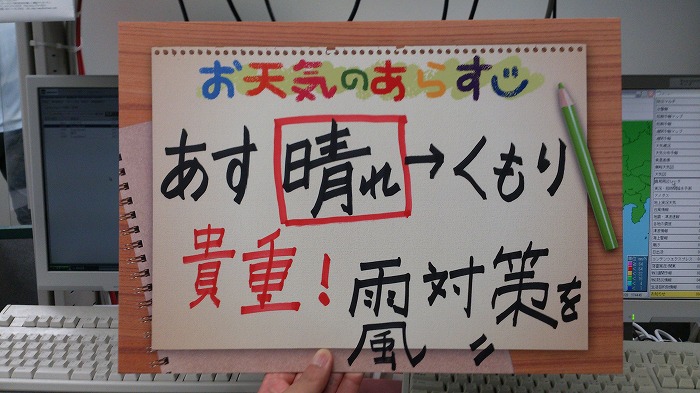 お天気のあらすじ
あす 晴れ→くもり
貴重! 雨対策を
風〃